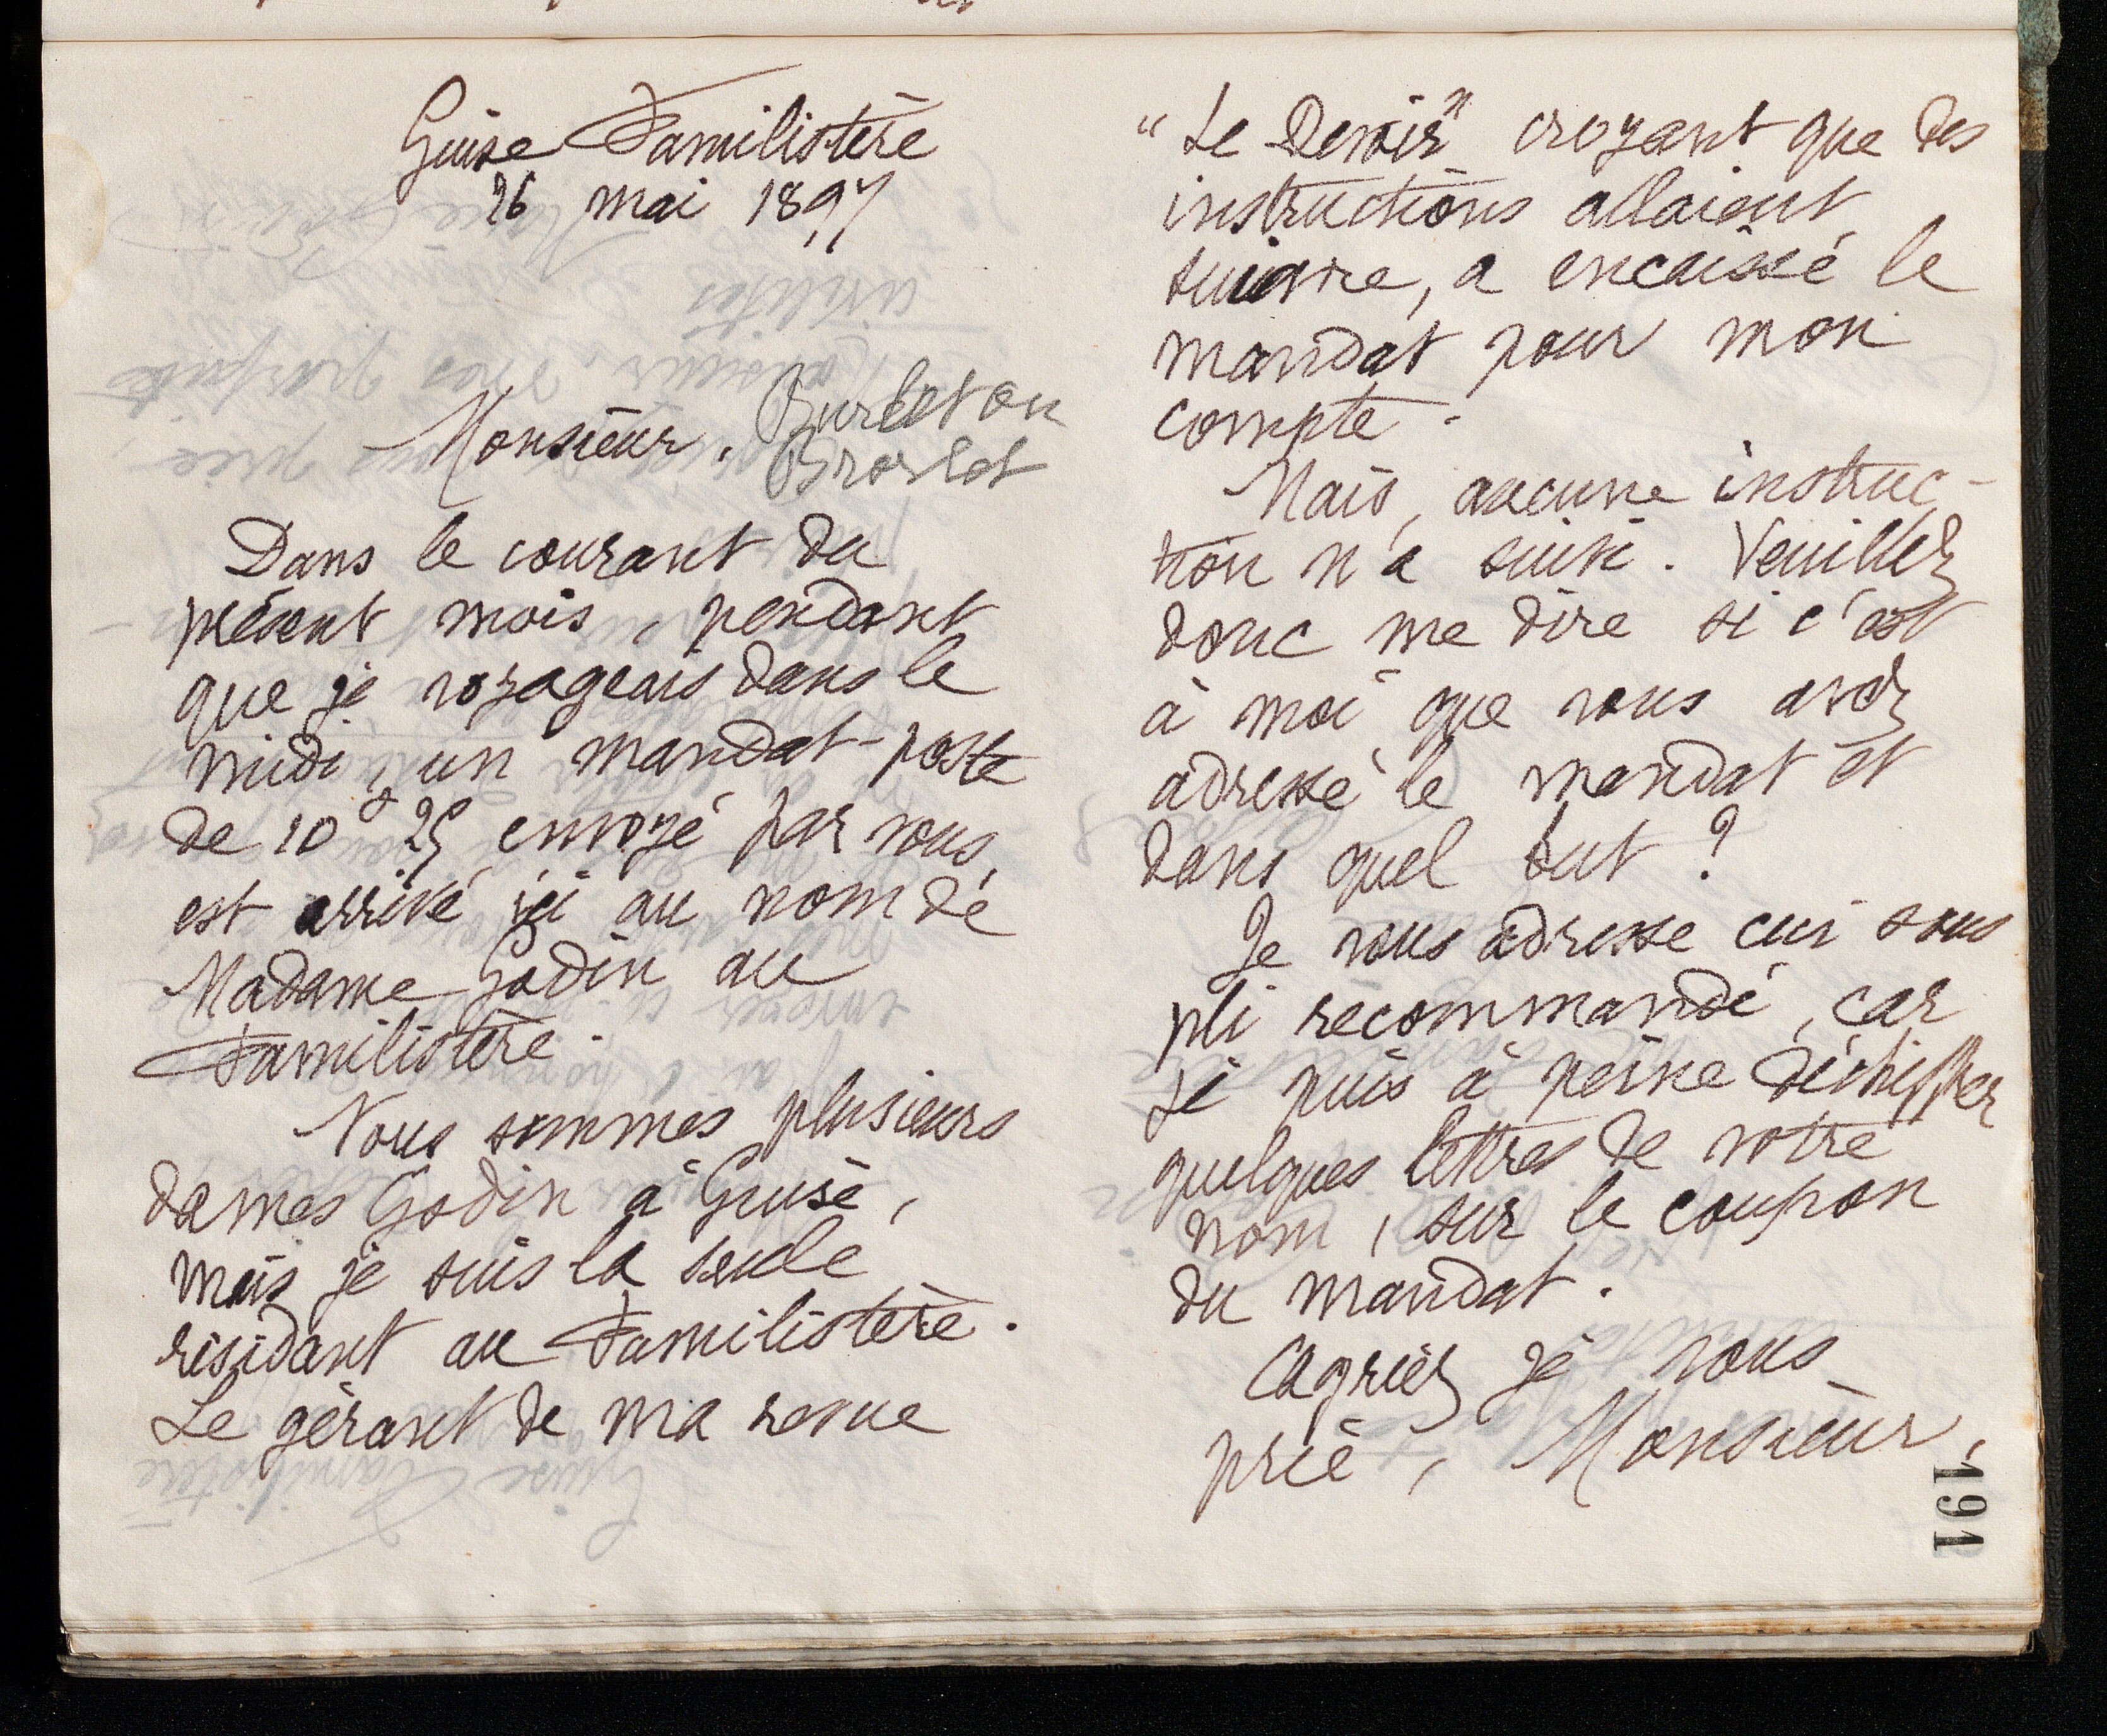 Guise Familistère
26 mai 1897
Monsieur. Burlet ou
Brorlot
Dans le courant du
présent mois, pendant
que je voyageais dans le
midi, un mandat-poste
de 10f 25 envoyé par vous
est arrivé ici au nom de
Madame Godin au
Familistère.
Nous sommes plusieurs
dames Godin à Guise,
mais je suis la seule
résidant au Familistère.
Le gérant de ma revue
"Le Devoir" croyant que des
instructions allaient
suivre, a encaissé le
mandat pour mon
compte.
Mais, aucune instruc-
tion n'a suivi. Veuillez
donc me dire si c'est
à moi que vous avez
adressé le mandat et
dans quel but ?
Je vous adresse ceci sous
pli recommandé, car
je puis à peine déchiffrer
quelques lettres de votre
nom, sur le coupon
du mandat.
Agréez je vous
prie, Monsieur,
191